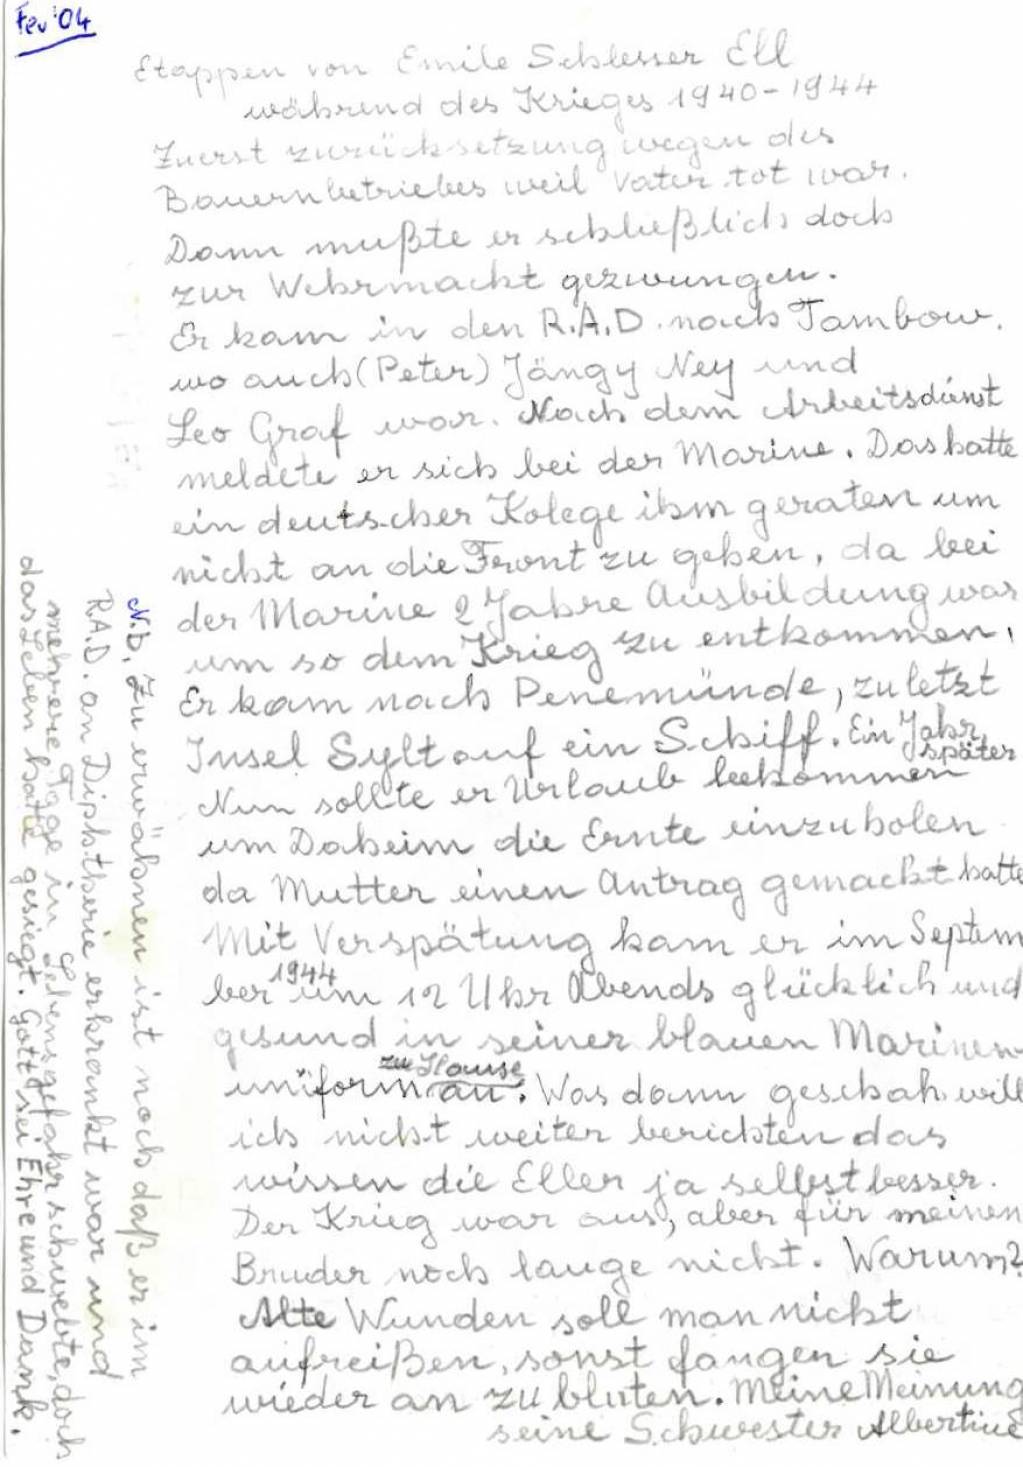 Fev '04
Etappen von Emile Schlesser Ell
während des Krieges 1940-1944
Zuerst zurücksetzung wegen des
Bauernbetriebes weil Vater tot war.
Dann mußte er schließlich doch
zur Wehrmacht gezwungen.
Er kam in den R.A.D. nach Tambow.
wo auch (Peter) Jängy Ney und
Leo Graf war. Nach dem Arbeitsdienst
meldete er sich bei der Marine. Das hatte
ein deutscher Kolege ihm geraten um
nicht an die Front zu gehen, da bei
der Marine 2 Jahre Ausbildung war
um so dem Krieg zu entkommen.
Er kam nach Penemünde, zuletzt
Insel Sylt auf ein Schiff. Ein Jahr
später
Nun sollte er Urlaub bekommen
um Daheim die Ernte einzuholen
da Mutter einen Antrag gemacht hatte
Mit Verspätung kam er im Septem
ber 1944 um 12 Uhr Abends glücklich und
gesund in seiner blauen Marinen-
uniform zu Hause an. Was dann geschah will
ich nicht weiter berichten das
wissen die Eller ja selbst besser.
Der Krieg war aus, aber für meinen
Bruder noch lange nicht. Warum?
Alte Wunden soll man nicht
aufreißen, sonst fangen sie
wieder an zu bluten. Meine Meinung
seine Schwester Albertine
N.b. Zu erwähnen ist noch daß er im
R.A.D. an Diphtherie erkrankt war und
mehrere Tage in Lebensgefahr schwebte, doch
das Leben hatte gesiegt. Gott sei Ehre und Dank.